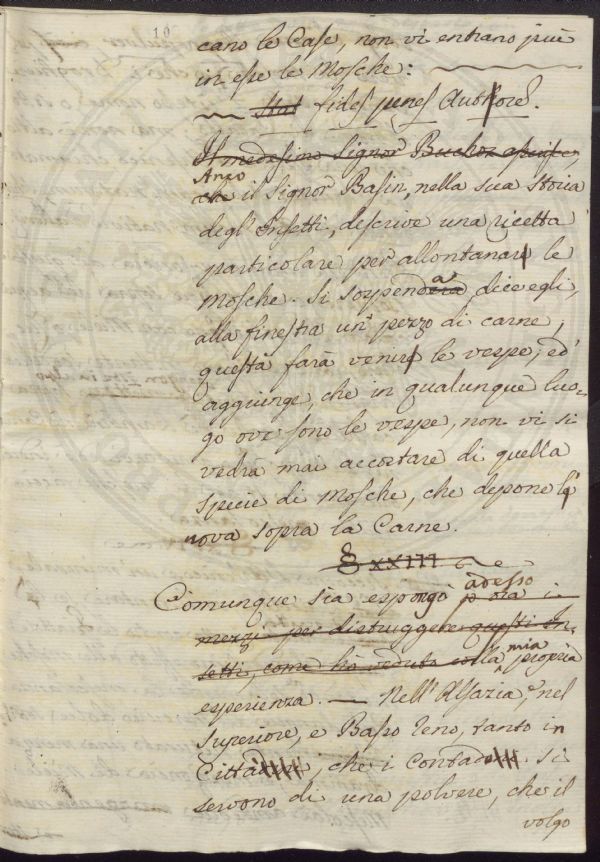 10
cano le Case, non vi entrano più
in esse le Mosche:
Stat fides penes Authores.
Il medesimo Signor Buchoz
Anzo
che il Signor Basin, nella sua Storia
degl' Insetti, descrive una ricetta
particolare per allontanare le
Mosche. Si sospenda, dice egli,
alla finestra un' pezzo di carne,
questa farà venire le vespe, ed
aggiunge, che in qualunque luo-
go ove sono le vespe, non vi si
vedrà mai accostare di quella
specie di Mosche, che depone le
uova sopra la Carne.
§ XXIII
adesso
Comunque sia espongo p ora i
mezzi per distruggere questi In-
mia
setti, come hò veduto colla propria
esperienza. — Nell'Alsazia, e nel
Superiore, e Basso Reno, tanto in
Città, che i Contad si
servono di una polvere, che il
volgo